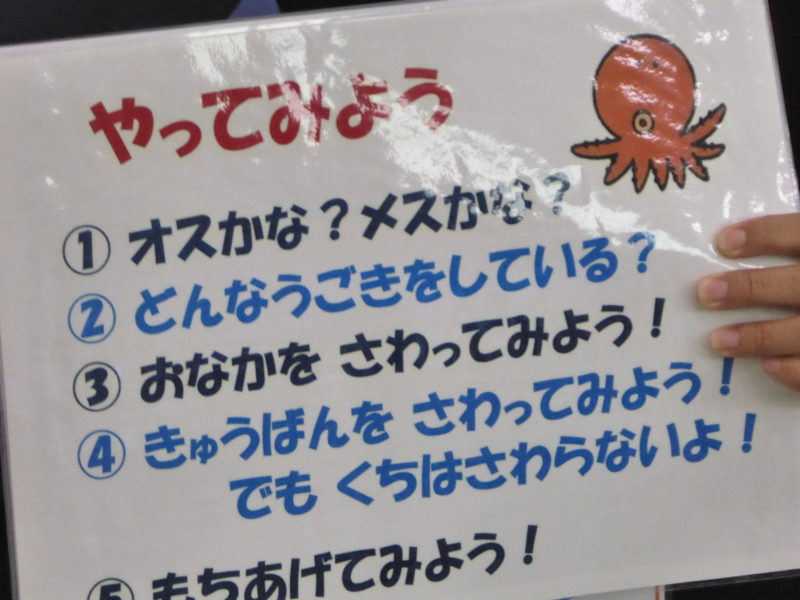 やってみよう
① オスかな？メスかな？
② どんなうごきをしている？
③ おなかを さわってみよう！
④ きゅうばんを さわってみよう！
でも くちはさわらないよ！
⑤ もちあげてみよう！